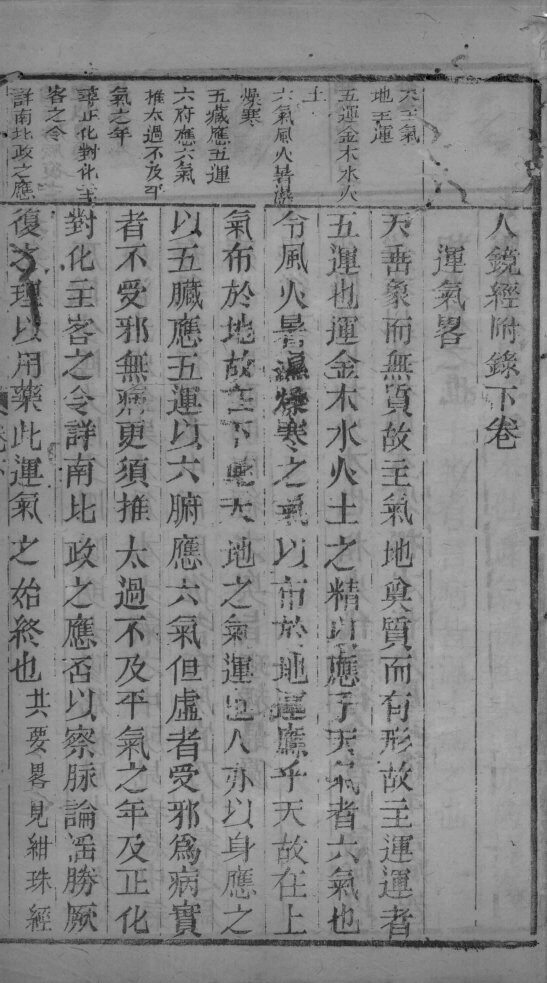 天主氣
地主運
五運金木水火
土
六氣風火暑濕
燥寒
五臟應五運
六府應六氣
推太過不及平
氣之年
詳正化對化主
客之令
詳南北政之應
人鏡經附錄下卷
運氣畧
天垂象而無質故主氣地奠質而有形故主運運者
五運也運金木水火土之精以應乎天氣者六氣也
令風火暑濕燥寒之氣以布於地運應乎天故在上
氣布於地故在下此天地之氣運也人亦以身應之
以五臟應五運以六腑應六氣但虛者受邪為病實
者不受邪無病更須推太過不及平氣之年及正化
對化主客之令詳南北政之應否以察脉論淫勝厥
復之理以用藥此運氣之始終也其要畧見紺珠經